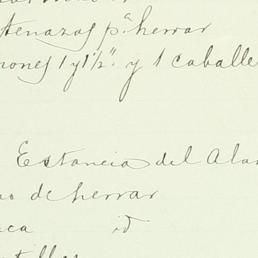 tenazas pª herrar
ones 1 y 1½" y 1 caballe
Estancia del Ala
o de herrar
ca id